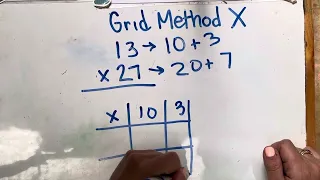 Grid Method X
13 → 10 + 3
x 27 → 20 + 7
x 10 3